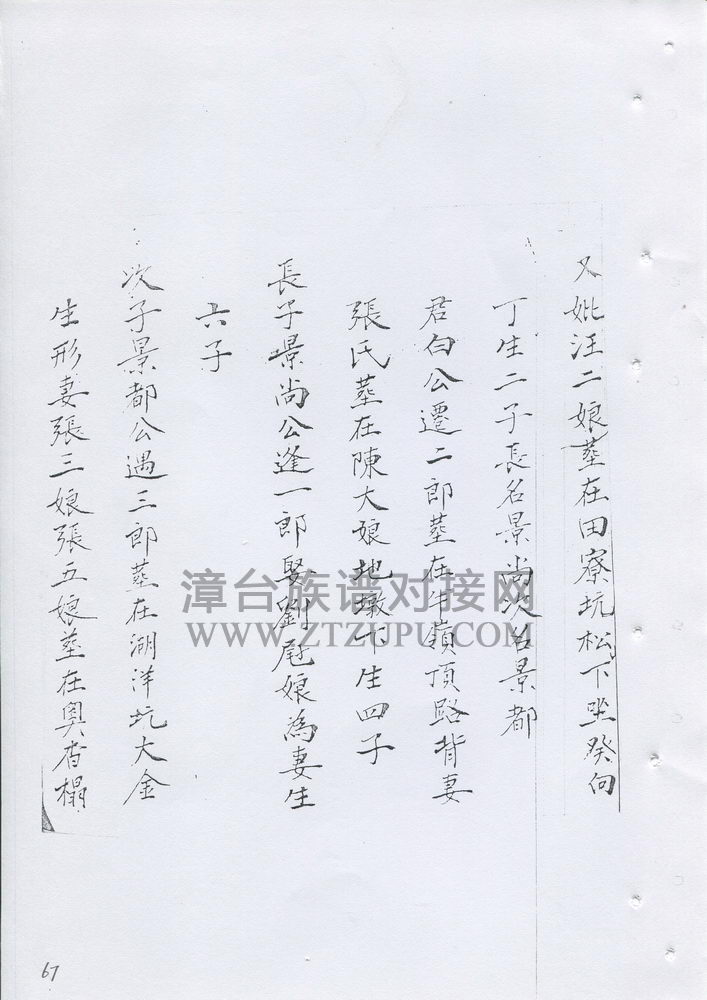 又妣汪二娘塟在田寮坑松下坐癸向
丁生二子長名景尚次名景都
君白公遷二郎塟在牛嶺頂路背妻
張氏塟在陳大娘地墩下生四子
長子景尚公逢一郎娶劉娘為妻生
六子
次子景都公遇三郎塟在湖洋坑大金
生形妻張三娘張五娘塟在奧杳榻
漳台族谱对接网
WWW.ZTZUPU.COM
67